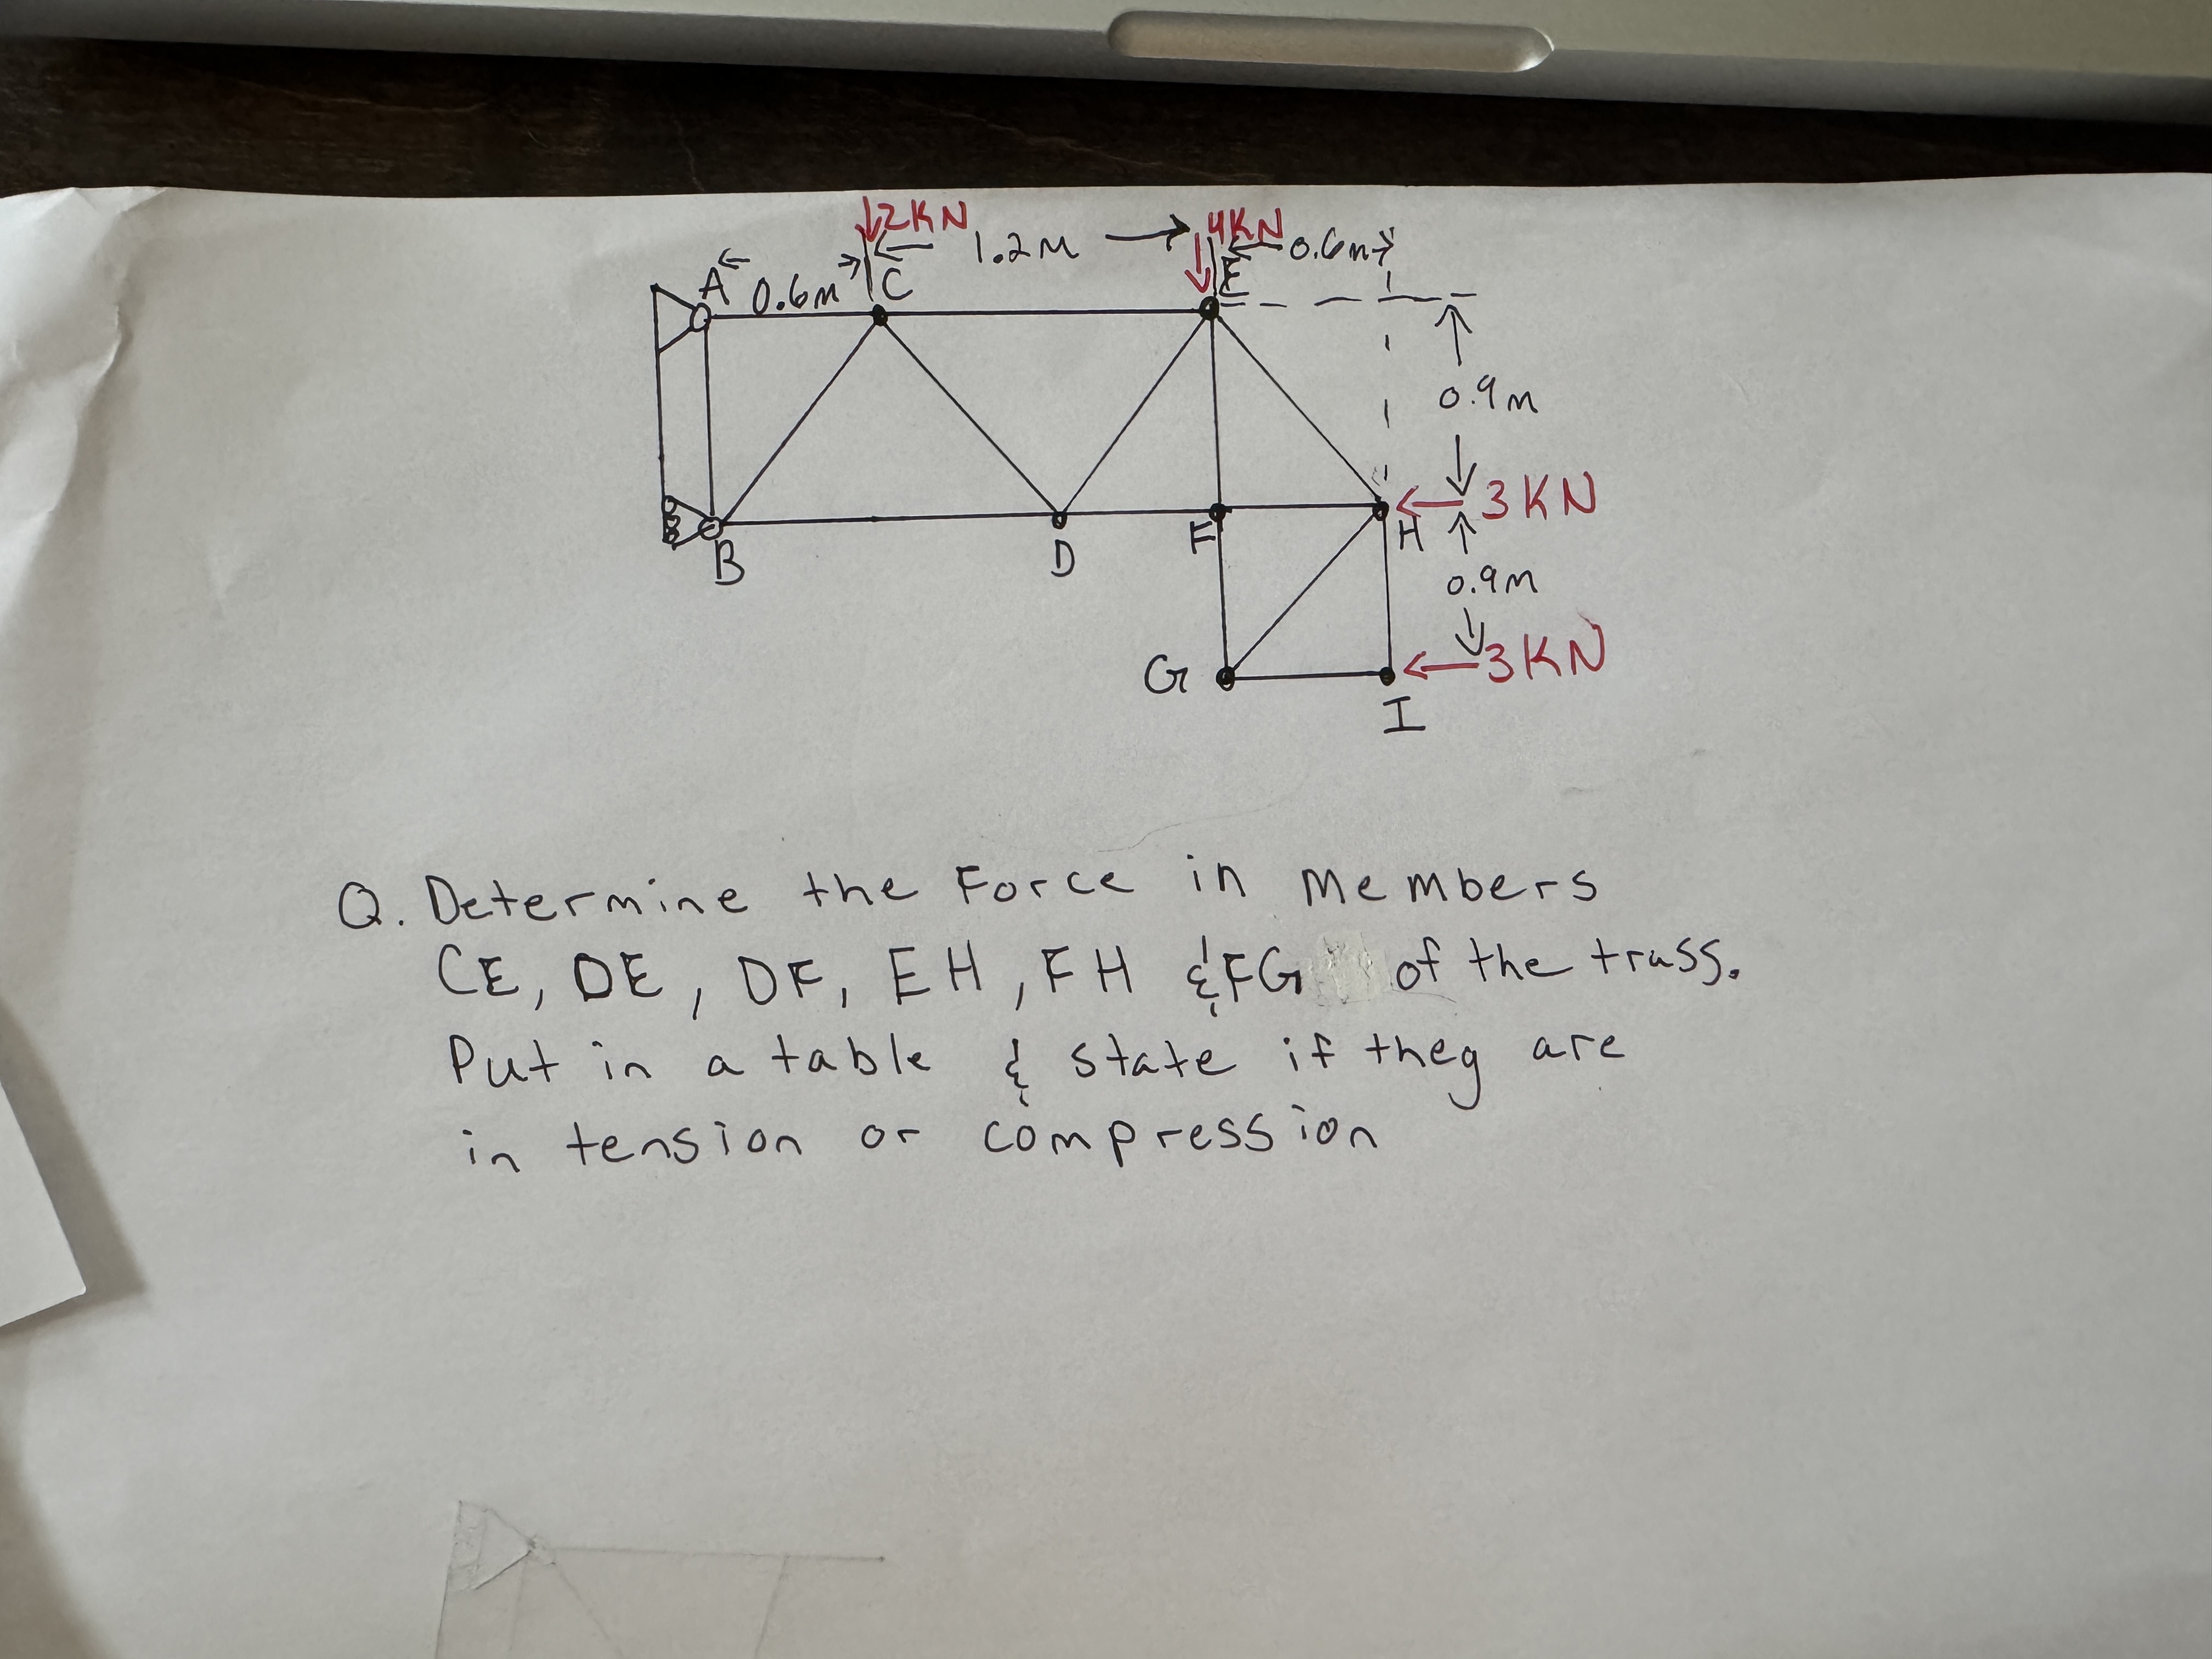 2KN
1.2M
4KN
0.6m
A
0.6m
C
E
0.9m
3KN
B
D
F
H
0.9m
3KN
G
I
Q. Determine the Force in Members
CE, DE, DF, EH, FH & FG of the truss.
Put in a table & state if they are
in tension or compression